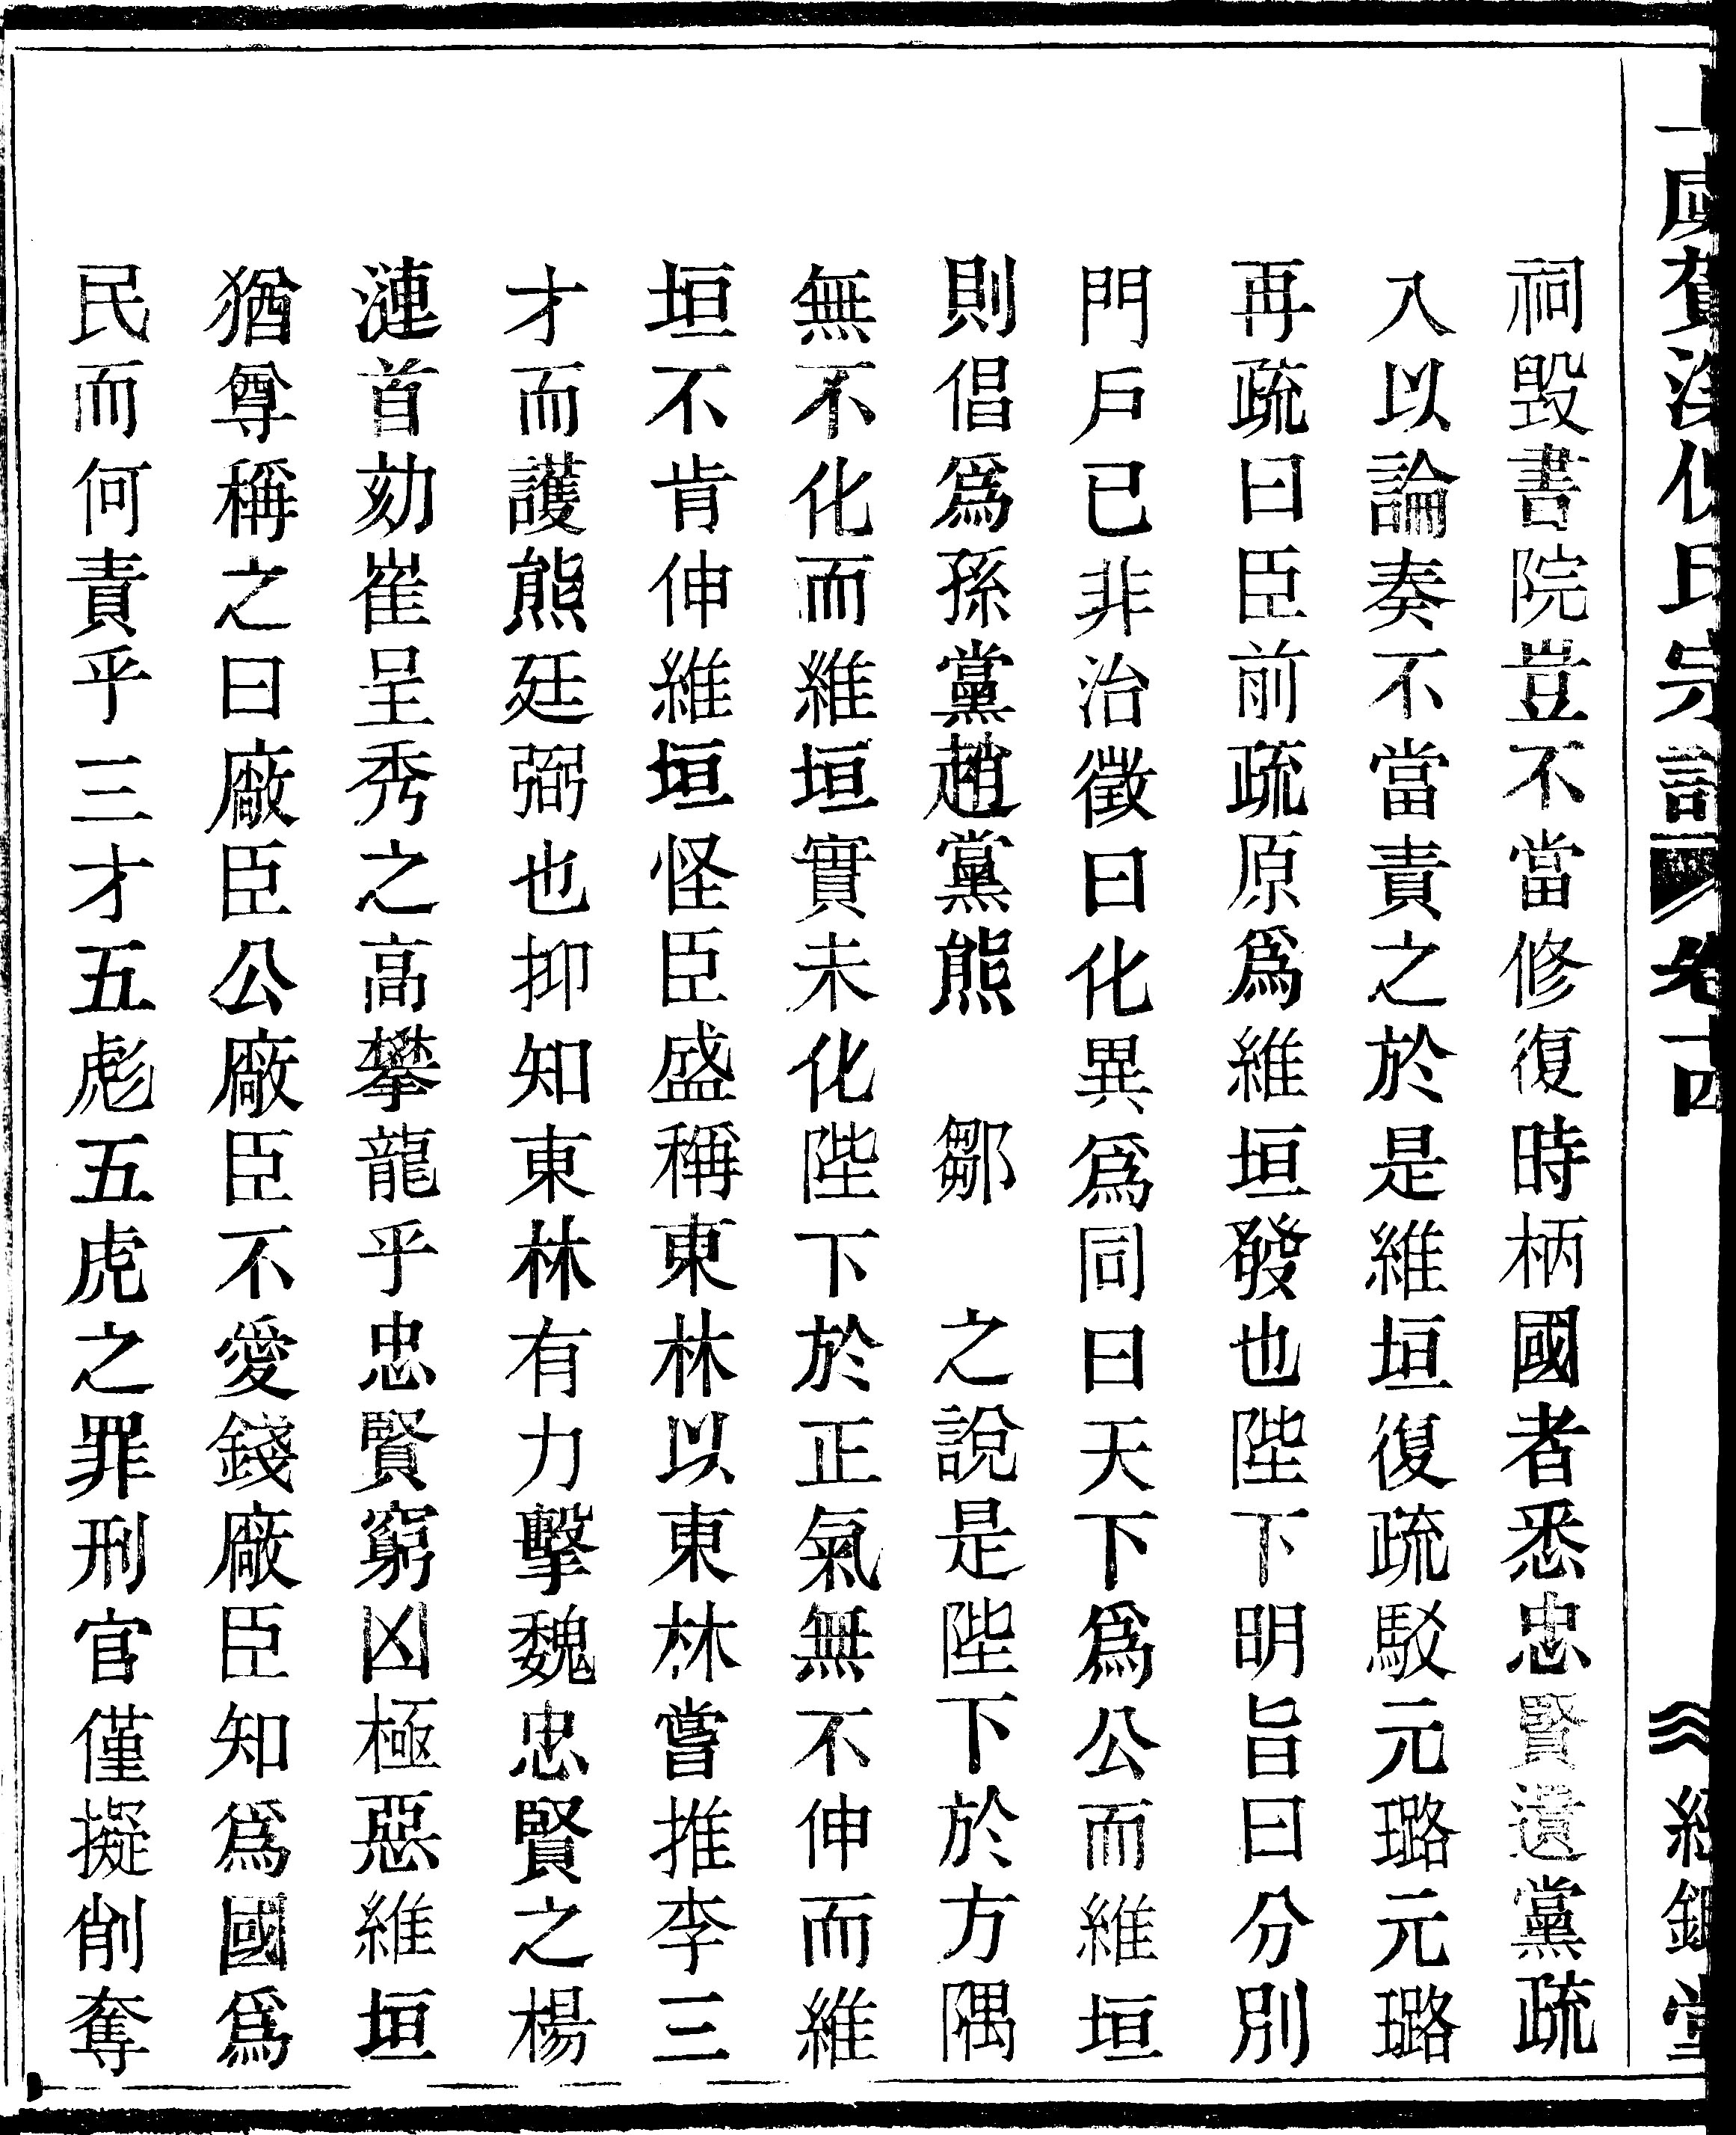 祠毀書院豈不當修復時柄國者悉忠賢遺黨疏
入以論奏不當責之於是維垣復疏駁元璐元璐
再疏曰臣前疏原爲維垣發也陛下明旨曰分別
門戶已非治徵曰化異爲同曰天下爲公而維垣
則倡爲孫黨趙黨熊　鄒　之說是陛下於方隅
無不化而維垣實未化陛下於正氣無不伸而維
垣不肯伸維垣怪臣盛稱東林以東林嘗推李三
才而護熊廷弼也抑知東林有力擊魏忠賢之楊
漣首劾崔呈秀之高攀龍乎忠賢窮凶極惡維垣
猶尊稱之曰廠臣公廠臣不愛錢廠臣知爲國爲
民而何責乎三才五彪五虎之罪刑官僅擬削奪